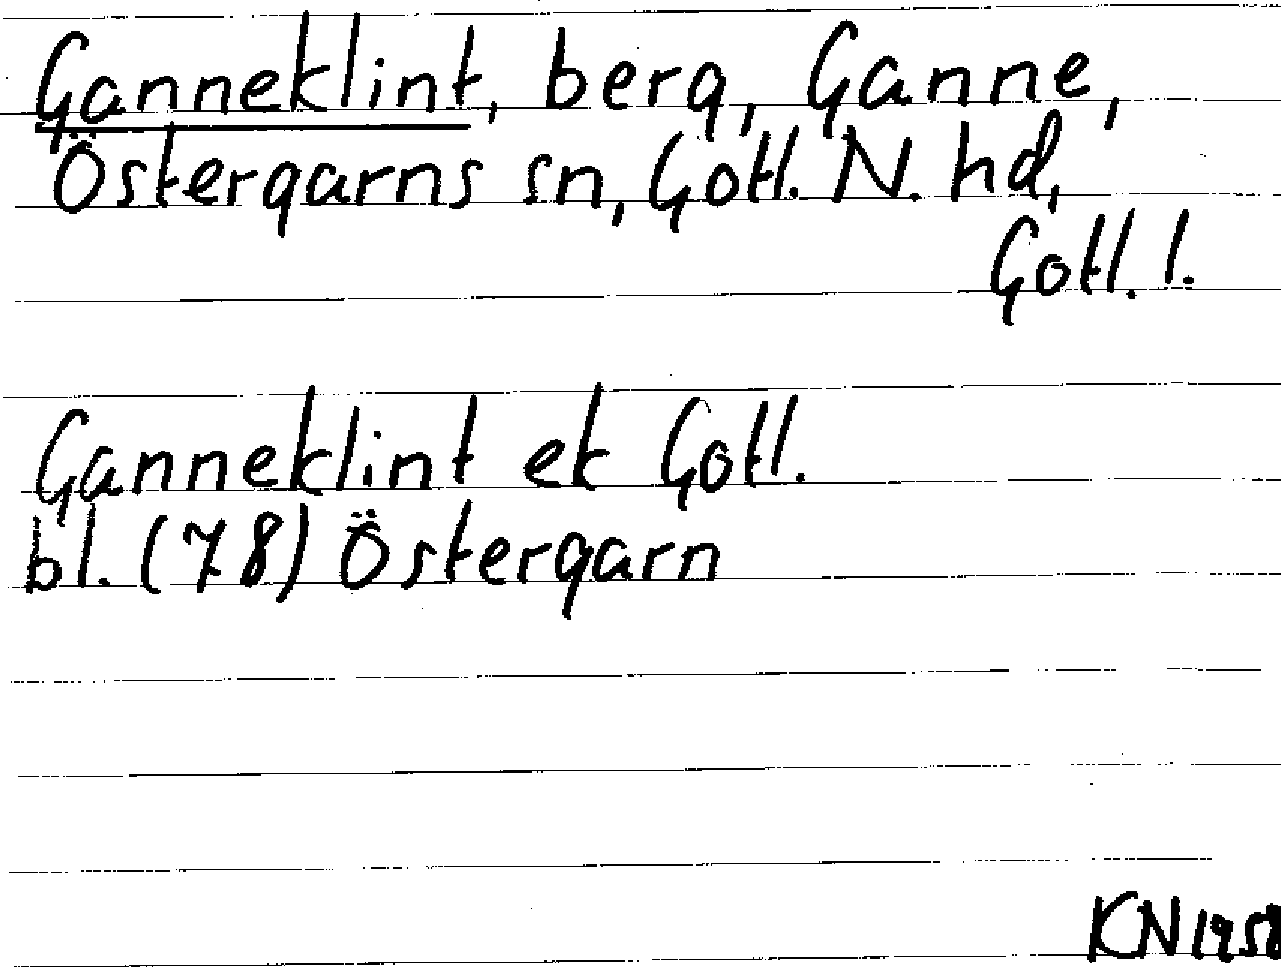 Ganneklint, berg, Ganne,
Östergarns sn, Gotl. N. hd,
Gotl. l.
Ganneklint ek Gotl.
bl. (78) Östergarn
KN 1958